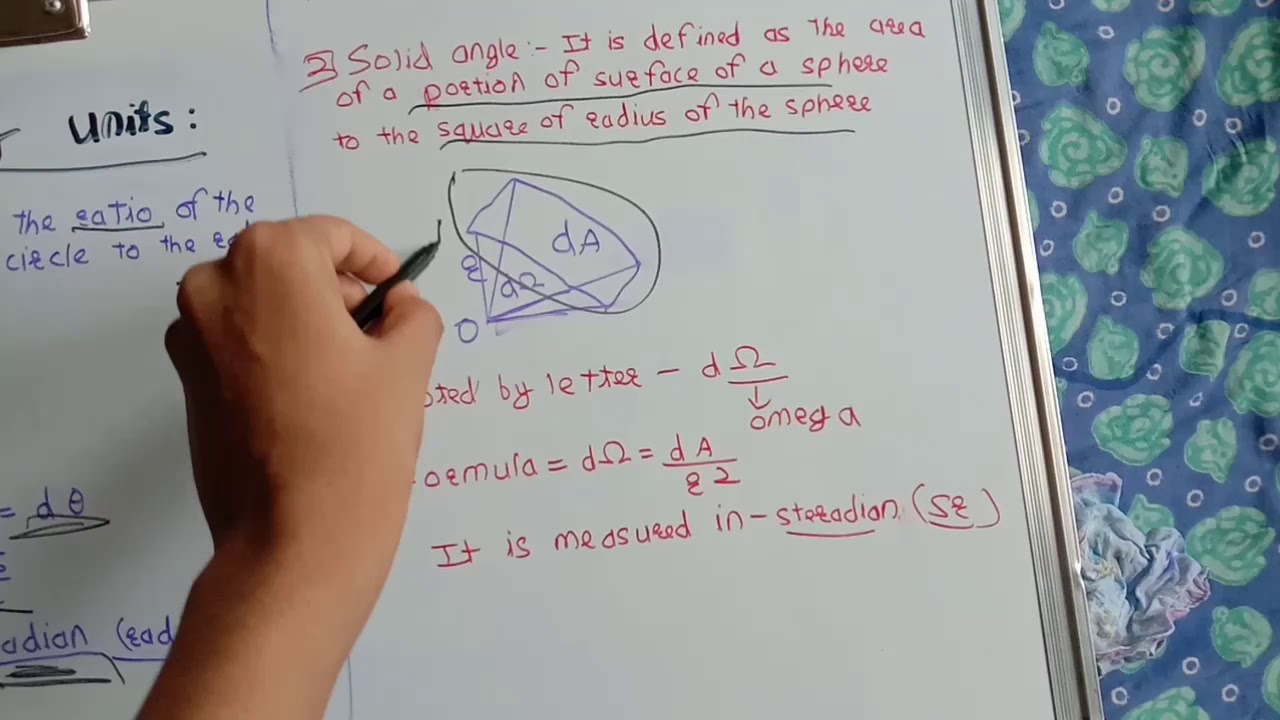 units:
the ratio of the
circle to the
= dθ
(rad
2] Solid angle :- It is defined as the area
of a portion of surface of a sphere
to the square of radius of the sphere
dA
r
dΩ
O
by letter - dΩ
omega
dΩ = dA
r2
It is measured in - steradian (Sr)